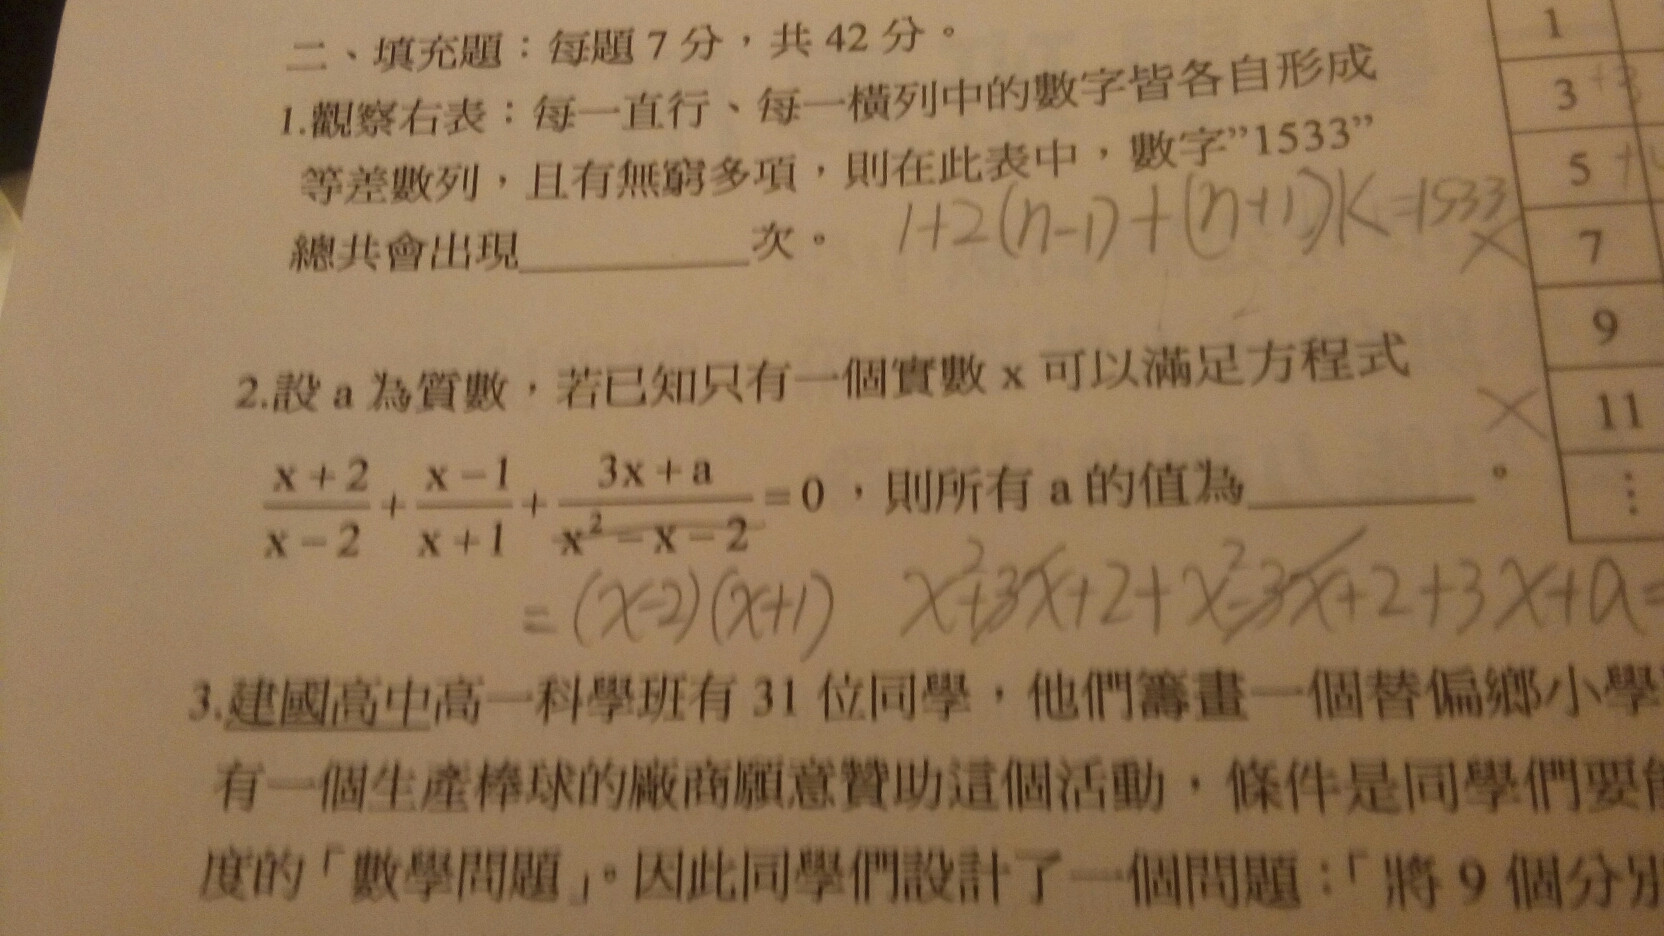 二、填充題：每題 7 分，共 42 分。
1.觀察右表：每一直行、每一橫列中的數字皆各自形成
等差數列，且有無窮多項，則在此表中，數字”1533”
總共會出現________次。
1+2(n-1)+(n+1)k=1533
1
3 +3
5 +4
7
9
11
⋮
2.設 a 為質數，若已知只有一個實數 x 可以滿足方程式
x+2/x-2 + x-1/x+1 + 3x+a/x²-x-2 =0，則所有 a 的值為________。
=(x-2)(x+1) x²+3x+2+x²-3x+2+3x+a=
3.建國高中高一科學班有 31 位同學，他們籌畫一個替偏鄉小學
有一個生產棒球的廠商願意贊助這個活動，條件是同學們要能
度的「數學問題」。因此同學們設計了一個問題：「將 9 個分別